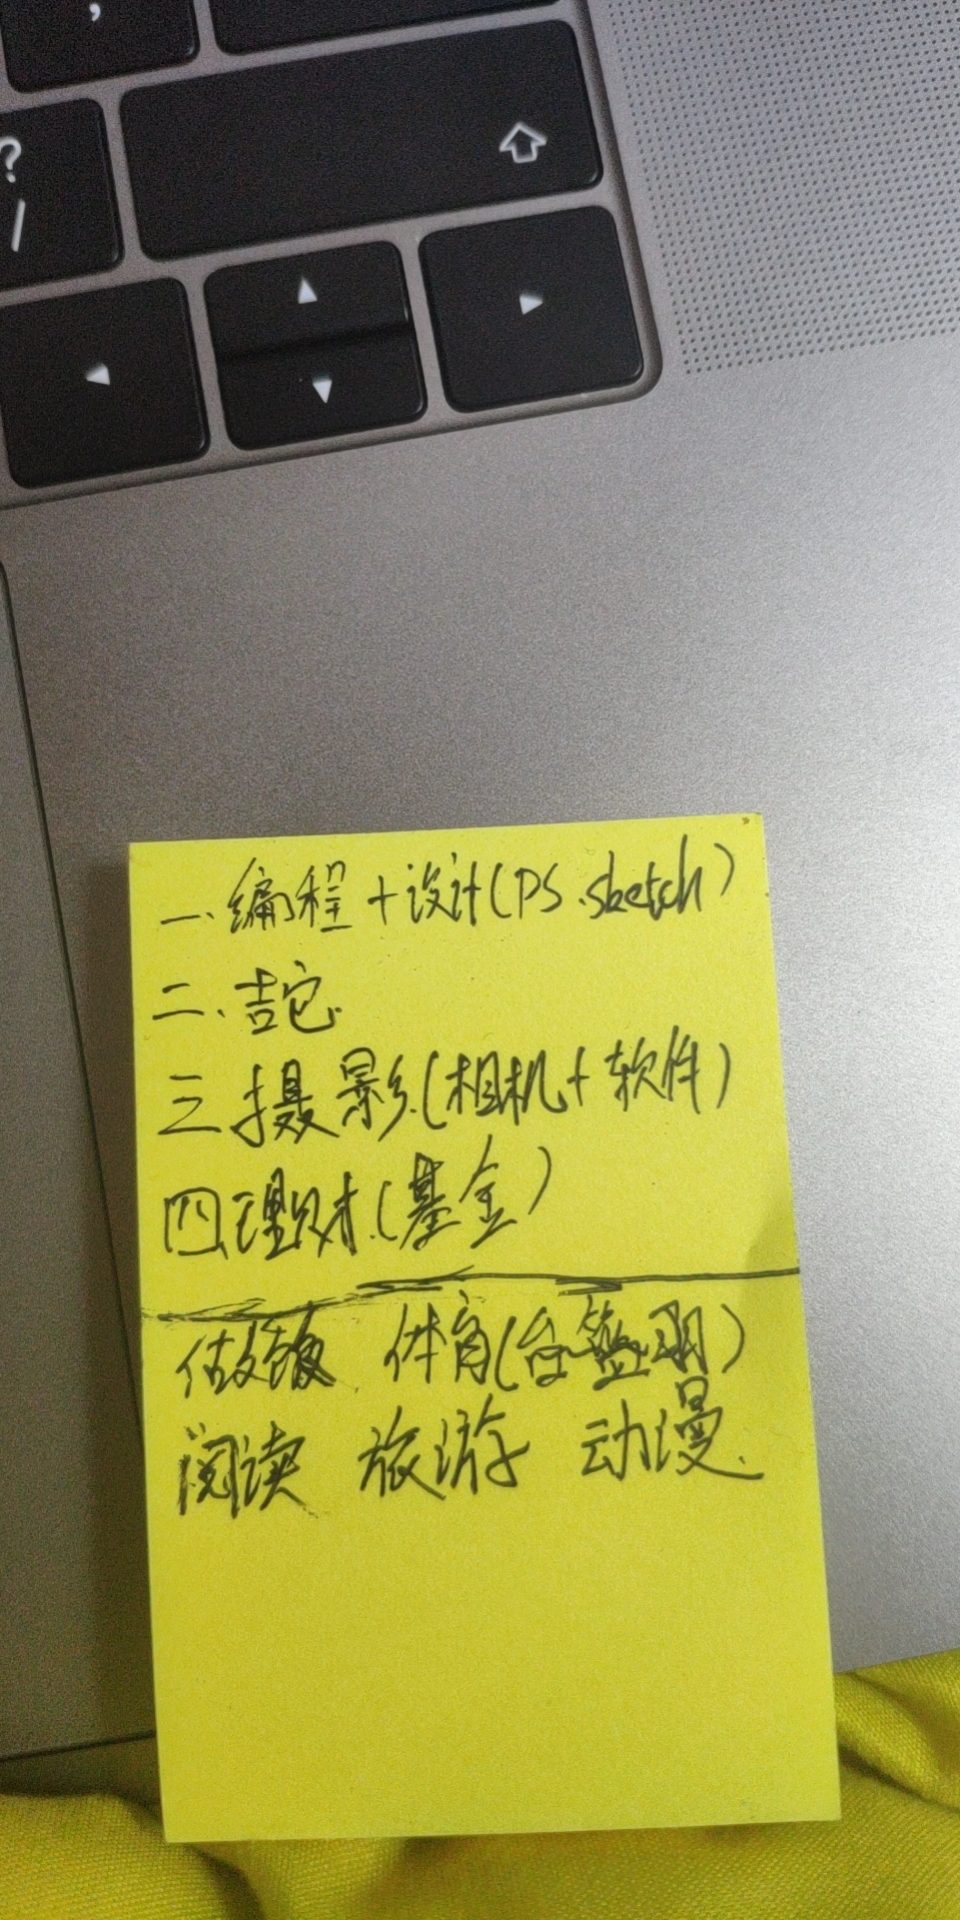 ,
?
/
一.编程+设计(PS.sketch)
二、吉它.
三.摄影.(相机+软件)
四.理财.(基金)
做饭 体育(台.篮.羽)
阅读 旅游 动漫.